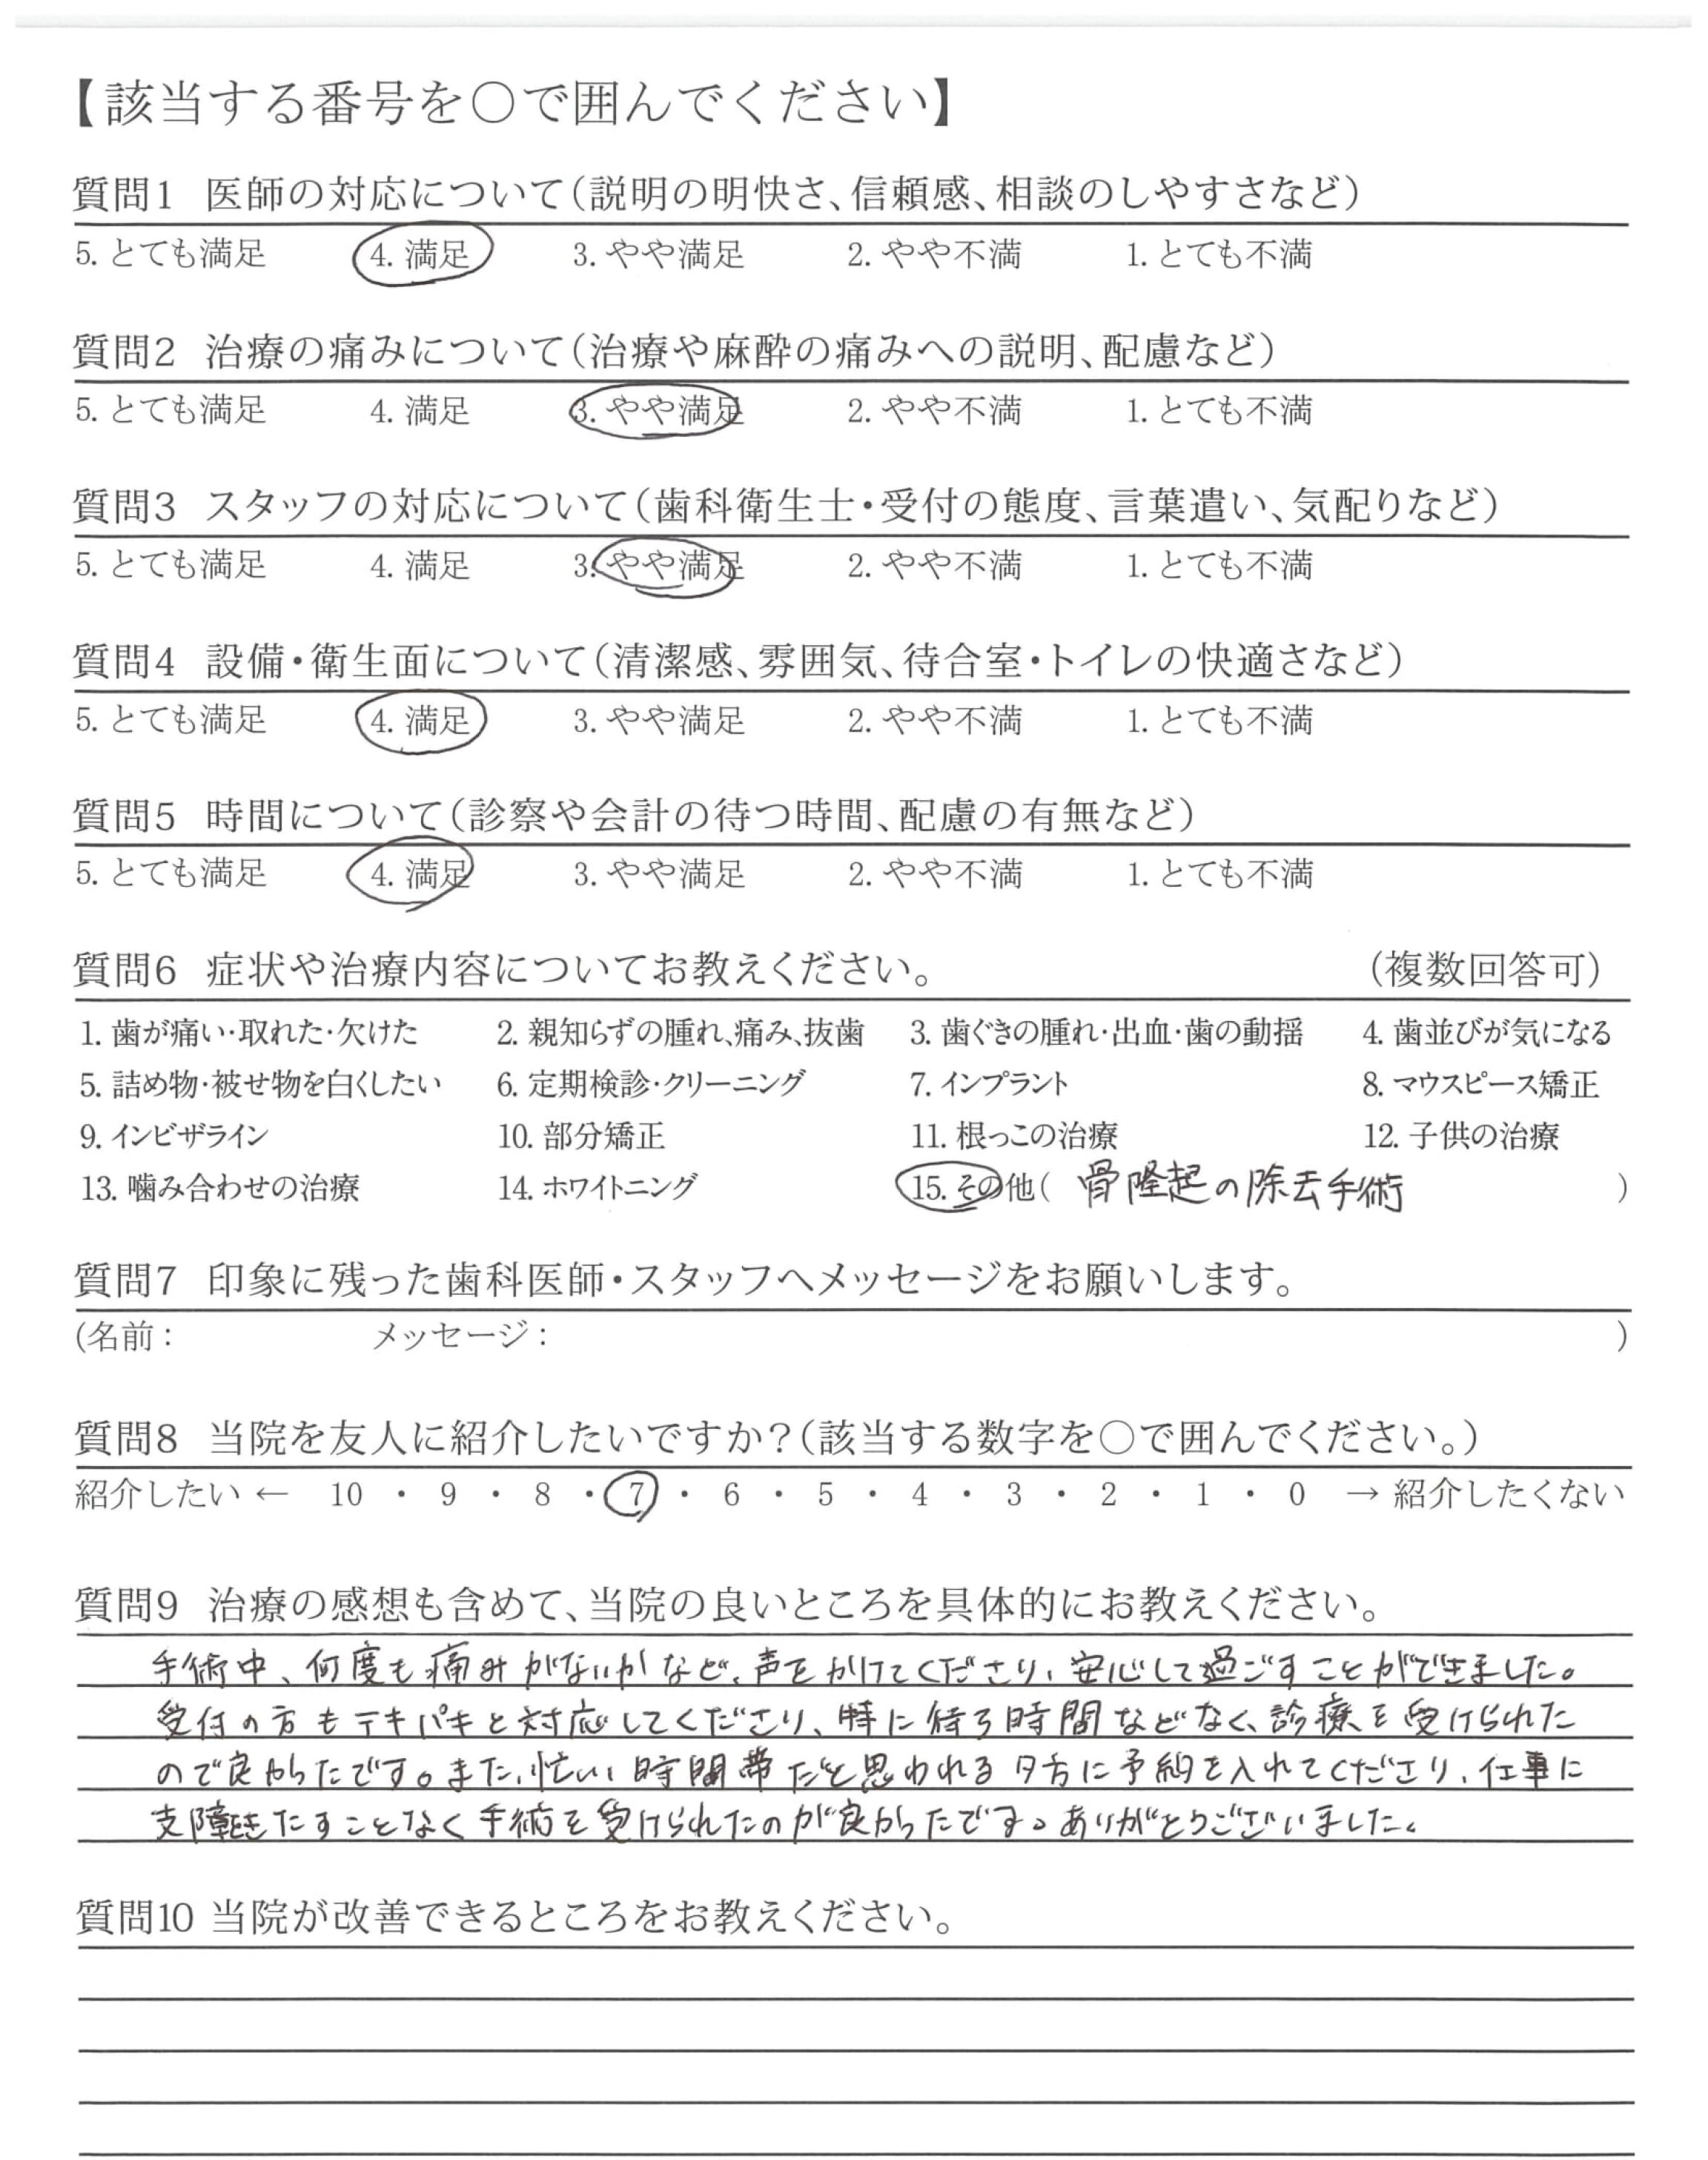 【該当する番号を〇で囲んでください】
質問1 医師の対応について(説明の明快さ、信頼感、相談のしやすさなど)
5. とても満足 4. 満足 3. やや満足 2. やや不満 1. とても不満
質問2 治療の痛みについて(治療や麻酔の痛みへの説明、配慮など)
5. とても満足 4. 満足 3. やや満足 2. やや不満 1. とても不満
質問3 スタッフの対応について(歯科衛生士・受付の態度、言葉遣い、気配りなど)
5. とても満足 4. 満足 3. やや満足 2. やや不満 1. とても不満
質問4 設備・衛生面について(清潔感、雰囲気、待合室・トイレの快適さなど)
5. とても満足 4. 満足 3. やや満足 2. やや不満 1. とても不満
質問5 時間について(診察や会計の待つ時間、配慮の有無など)
5. とても満足 4. 満足 3. やや満足 2. やや不満 1. とても不満
質問6 症状や治療内容についてお教えください。 (複数回答可)
1. 歯が痛い・取れた・欠けた 2. 親知らずの腫れ、痛み、抜歯 3. 歯ぐきの腫れ・出血・歯の動揺 4. 歯並びが気になる
5. 詰め物・被せ物を白くしたい 6. 定期検診・クリーニング 7. インプラント 8. マウスピース矯正
9. インビザライン 10. 部分矯正 11. 根っこの治療 12. 子供の治療
13. 噛み合わせの治療 14. ホワイトニング 15. その他( 骨隆起の除去手術 )
質問7 印象に残った歯科医師・スタッフへメッセージをお願いします。
(名前: メッセージ: )
質問8 当院を友人に紹介したいですか?(該当する数字を〇で囲んでください。)
紹介したい ← 10 ・ 9 ・ 8 ・ 7 ・ 6 ・ 5 ・ 4 ・ 3 ・ 2 ・ 1 ・ 0 → 紹介したくない
質問9 治療の感想も含めて、当院の良いところを具体的にお教えください。
手術中、何度も痛みがないかなど、声をかけてくださり、安心して過ごすことができました。
受付の方もテキパキと対応してくださり、特に待つ時間などなく、診療を受けられた
ので良かったです。また、忙しい時間帯だと思われる夕方に予約を入れてくださり、仕事に
支障をきたすことなく手術を受けられたのが良かったです。ありがとうございました。
質問10 当院が改善できるところをお教えください。